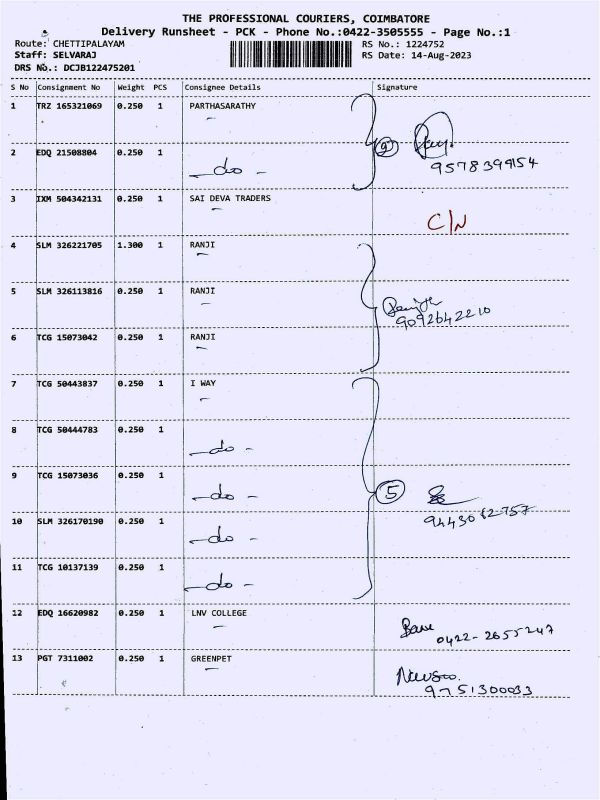 THE PROFESSIONAL COURIERS, COIMBATORE
Delivery Runsheet - PCK - Phone No.:0422-3505555 - Page No.:1
Route: CHETTIPALAYAM RS No.: 1224752
Staff: SELVARAJ RS Date: 14-Aug-2023
DRS No.: DCJB122475201
S No Consignment No Weight PCS Consignee Details Signature
1 TRZ 165321069 0.250 1 PARTHASARATHY
2 EDQ 21508804 0.250 1 -do-
9578399154
3 IXM 504342131 0.250 1 SAI DEVA TRADERS
C/N
4 SLM 326221705 1.300 1 RANJI
5 SLM 326113816 0.250 1 RANJI
9092642210
6 TCG 15073042 0.250 1 RANJI
7 TCG 50443837 0.250 1 I WAY
8 TCG 50444783 0.250 1 -do-
9 TCG 15073036 0.250 1 -do- 5
9443062757
10 SLM 326170190 0.250 1 -do-
11 TCG 10137139 0.250 1 -do-
12 EDQ 16620982 0.250 1 LNV COLLEGE
0422-2655247
13 PGT 7311002 0.250 1 GREENPET
9751300033